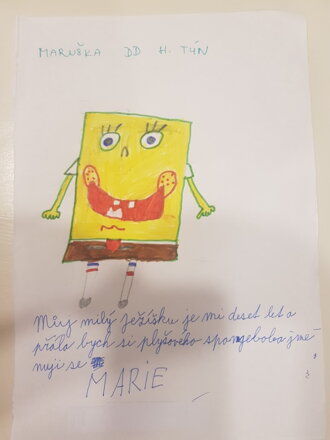 MARUŠKA DD H. TÝN
Můj milý Ježíšku je mi deset let a
přála bych si plyšového spongeboba jme
nuji se
MARIE